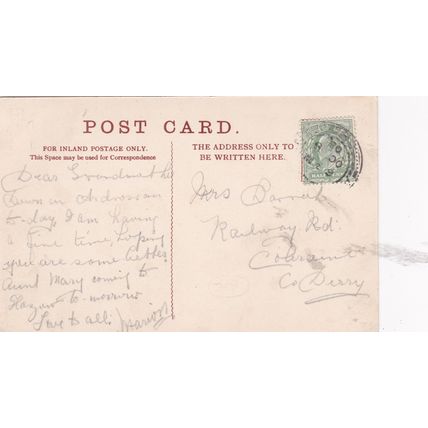 POST CARD.
FOR INLAND POSTAGE ONLY.
This Space may be used for Correspondence
Dear Grandmother
Down in Ardrossan
to-day, I am having
a fine time, hoping
you are some better
Aunt Mary coming to
to-morrow
Love to all.
THE ADDRESS ONLY TO
BE WRITTEN HERE.
Mrs
Railway Rd.
Coleraine
Co Derry